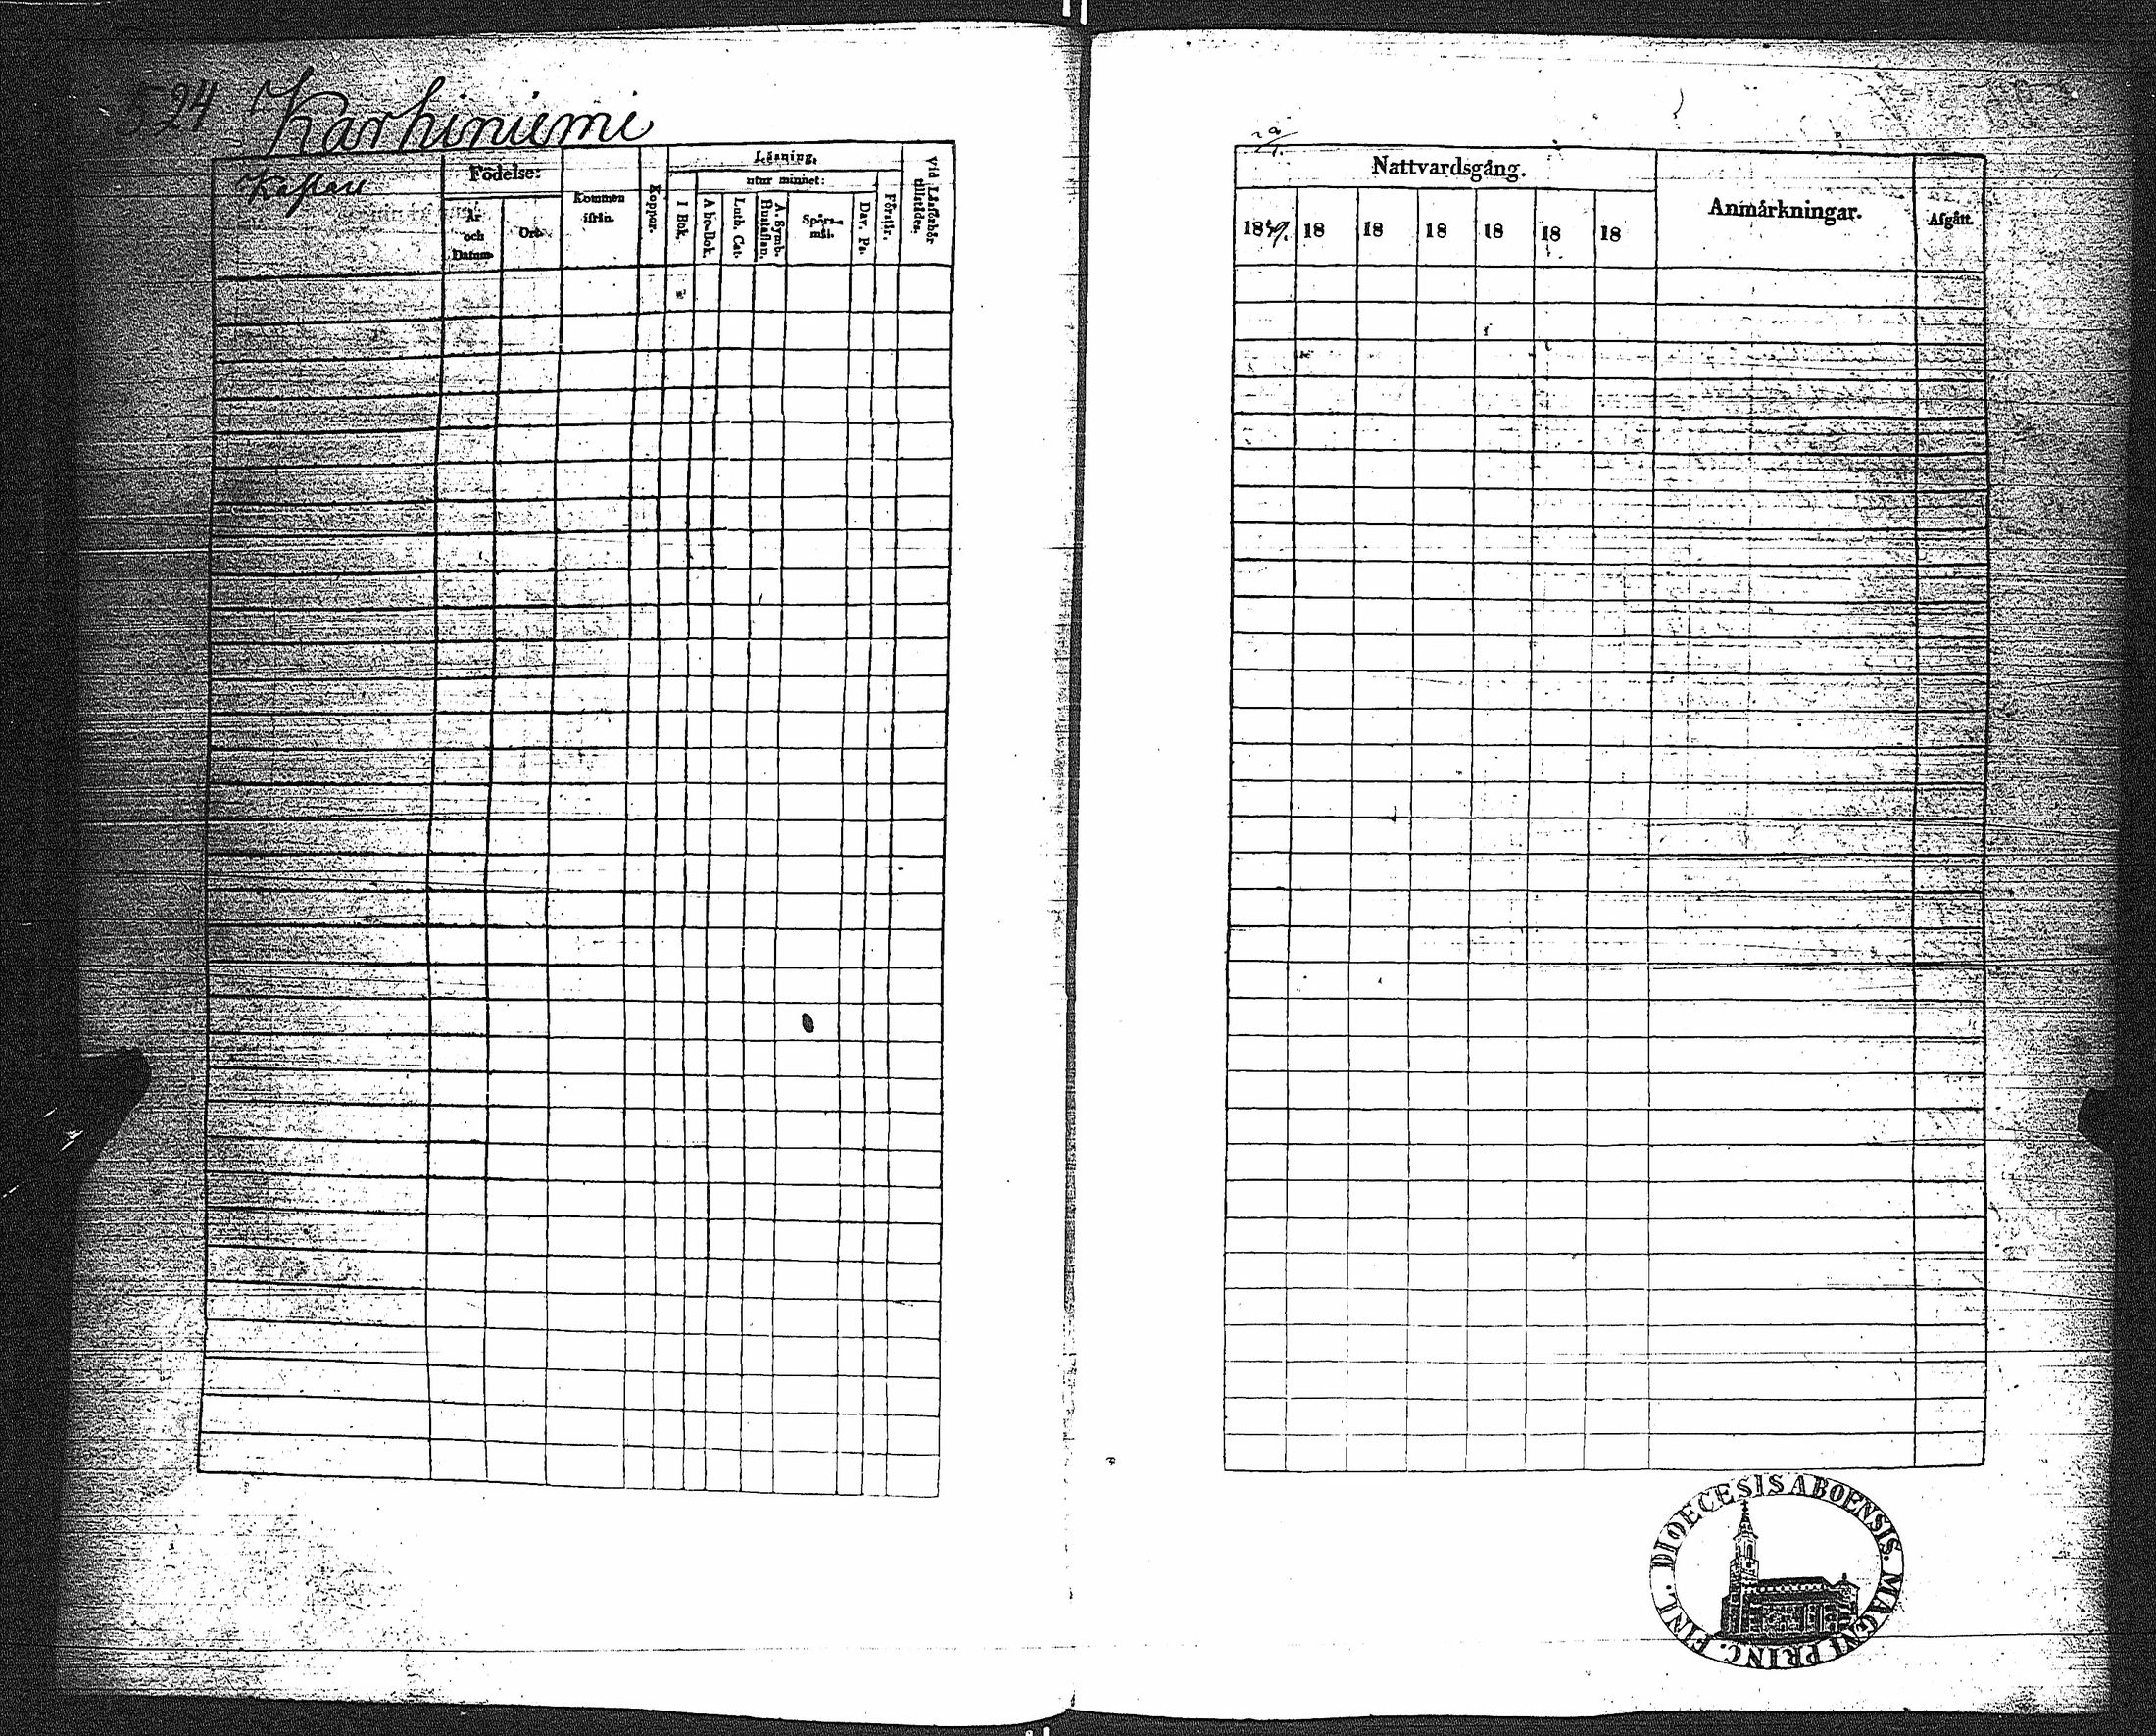 524 Karhiniemi
Födelse:
År och Datum
Ort.
Kommen ifrån.
Koppor.
Läsning,
utur minnet:
I Bok.
A b c-Bok.
Luth. Cat.
A. Symb. Hustaflan.
Spörs-
mål.
Dav. Ps.
Förstår.
Vid Läsförhör tillstädes.
Nattvardsgång.
18 18 18 18 18 18
Anmärkningar.
Afgått.
DIOECESIS ABOENSIS. MAGNI PRINC. FINL.